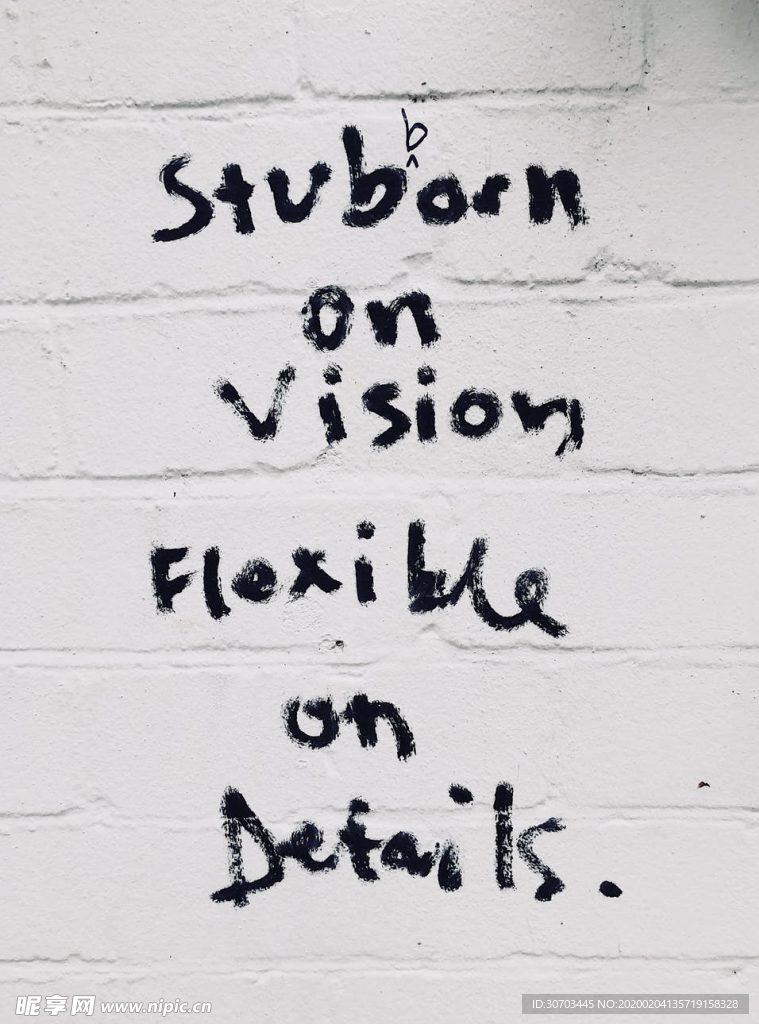 Stubborn
on
Vision
Flexible
on
Details.
昵享网 www.nipic.cn
ID:30703445 NO:20200204135719158328